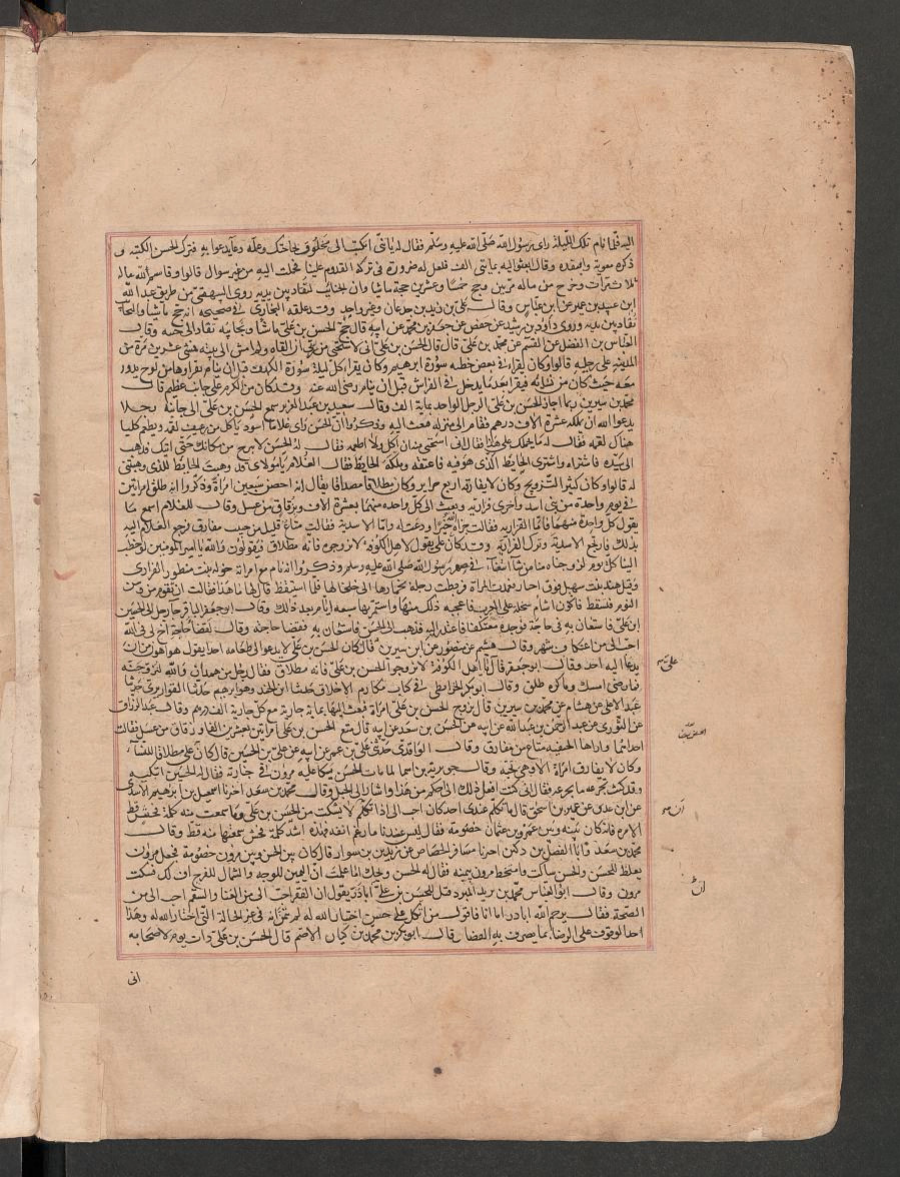 اليه فلما نام تلك الليلة رأى رسول الله صلى الله عليه وسلم فقال له يا بني اتكتب الى مخلوق بحاجتك وعلمه دعا يدعوا به فترك الحسن الكتبه و
ذكره معوية وافتقده وقال ابعثوا اليه بمايتي الف فلعل له ضرورة في تركه القدوم علينا فحملت اليه من غير سوال قالوا وقاسم الله ماله
ثلاث مرات وخرج من ماله مرتين وحج خمسا وعشرين حجة ماشيا وان الجنايب لتقاد بين يديه روى البيهقي من طريق عبد الله
ابن عبيد بن عمير عن ابن عباس وقال علي بن زيد بن جدعان وغير واحد وقد علقه البخاري في صحيحه انه حج ماشيا والنجايب
تقاد بين يديه وروى داود بن رشيد عن حفص عن جعفر بن محمد عن ابيه قال حج الحسن بن علي ماشيا ونجايبه تقاد الى جنبه وقال
العباس بن الفضل عن القسم عن محمد بن علي قال قال الحسن بن علي اني لاستحيي من ربي ان القاه ولم امش الى بيته فمشى عشرين مرة من
المدينة على رجليه قالوا وكان يقراء في بعض خطبه سورة ابرهيم وكان يقراء كل ليلة سورة الكهف قبل ان ينام يقراوها من لوح يدور
معه حيث كان من نسائه فيقراء بعد ما يدخل في الفراش قبل ان ينام رضي الله عنه وقد كان من الكرم على جانب عظيم قال
محمد بن سيرين ربما اجاز الحسن بن علي الرجل الواحد بماية الف وقال سعيد بن عبد العزيز سمع الحسن بن علي الى جانبه رجلا
يدعوا الله ان يملكه عشرة الاف درهم فقام الى منزله فبعث اليه وذكروا ان الحسن راى غلاما اسود ياكل من رغيف لقمه ويطعم كلبا
هناك لقمه فقال له ما يحملك على هذا فقال اني استحيي منه ان اكل ولا اطعمه فقال له الحسن لا تبرح من مكانك حتى اتيك فذهب
الى سيده فاشتراه واشترى الحايط الذي هو فيه فاعتقه وملكه الحايط فقال الغلام يا مولاي قد وهبت الحايط للذي وهبتني
له قالوا وكان كثير التزويج وكان لا يفارقه اربع حراير وكان مطلاقا مصداقا يقال انه احصن سبعين امراة وذكروا انه طلق امراتين
في يوم واحدة من بني اسد واخرى فزارية وبعث الى كل واحدة منهما بعشرة الاف وبزقاق من عسل وقال للغلام اسمع ما
يقول كل واحدة منهما فاما الفزارية فقالت جزاه الله خيرا ودعت له واما الاسدية فقالت متاع قليل من حبيب مفارق فرجع الغلام اليه
بذلك فارتجع الاسدية وترك الفزارية وقد كان علي يقول لاهل الكوفة لا تزوجوه فانه مطلاق فيقولون والله يا امير المومنين لو خطب
الينا كل يوم لزوجناه منا من شاء ابتغاء في صهر رسول الله صلى الله عليه وسلم وذكروا انه نام مع امراته خولة بنت منظور الفزاري
وقيل هند بنت سهيل فوق اجار فعمدت المراة فربطت رجله بخمارها الى خلخالها فلما استيقظ قال لها ما هذا فقالت ان تقوم من وسن
النوم فتسقط فاكون اشام سخلة على العرب فاعجبه ذلك منها واستمر بها سبعة ايام بعد ذلك وقال ابو جعفر الباقر جاء رجل الى الحسين
ابن علي فاستعان به في حاجة فوجده معتكفا فاعتذر اليه فذهب الى الحسن فاستعان به فقضا حاجته وقال لقضا حاجة اخ لي في الله
احب الي من اعتكاف شهر وقال هشيم عن منصور عن ابن سيرين قال كان الحسن بن علي لا يدعوا الى طعامه احدا يقول هو اهون من ان
يدعا اليه احد وقال ابو جعفر قال علي يا اهل الكوفة لا تزوجوا الحسن بن علي فانه مطلاق فقال رجل من همدان والله لنزوجنه
فما رضي امسك وما كره طلق وقال ابو بكر الخرائطي في كتاب مكارم الاخلاق حدثنا ابن الجنيد وهو ابرهيم حدثنا القواريري حدثنا
عبد الاعلى عن هشام عن محمد بن سيرين قال تزوج الحسن بن علي امراة فبعث اليها بماية جارية مع كل جارية الف درهم وقال عبد الرزاق
عن الثوري عن عبد الرحمن بن عبد الله عن ابيه عن الحسن بن سعد عن ابيه قال متع الحسن بن علي امراتين بعشرين الفا وزقاق من عسل فقالت
احداهما واراها الحنفية متاع من مفارق وقال الواقدي حدثني علي بن عمر عن ابيه عن علي بن الحسين قال كان علي مطلاقا للنساء
وكان لا يفارق امراة الا وهي تحبه وقال جويرية بن اسما لما مات الحسن بكا عليه مروان في جنازته فقال له الحسين اتبكيه
وقد كنت تجرعه ما تجرعه فقال اني كنت افعل ذلك الى احلم من هذا واشار الى الجبل وقال محمد بن سعد اخبرنا اسمعيل بن ابرهيم الاسدي
عن ابن عون عن عمير بن اسحق قال ما تكلم عندي احد كان احب الي اذا تكلم ان لا يسكت من الحسن بن علي وما سمعت منه كلمة فحش قط
الا مره فانه كان بينه وبين عمرو بن عثمان خصومة فقال ليس عندنا ما رغم انفه فهذه اشد كلمة فحش سمعتها منه قط وقال
محمد بن سعد وانا الفضل بن دكين اخبرنا مسافر الجصاص عن رزيق بن سوار قال كان بين الحسن وبين مروان خصومة فجعل مروان
يغلظ للحسن والحسن ساكت فامتخط مروان بيمينه فقال له الحسن ويحك اما علمت ان اليمين للوجه والشمال للفرج اف لك فسكت
مروان وقال ابو العباس محمد بن يزيد المبرد قيل للحسن بن علي ان اباذر يقول ان الفقر احب الي من الغنا والسقم احب الي من
الصحة فقال يرحم الله اباذر اما انا فاقول من اتكل على حسن اختيار الله له لم يتمن انه في غير الحالة التي اختار الله له وهذا
احد الوقوف على الرضا بما يصرف به القضا وقال ابو بكر بن محمد بن كيسان الاصم قال الحسن بن علي ذات يوم لاصحابه
اني